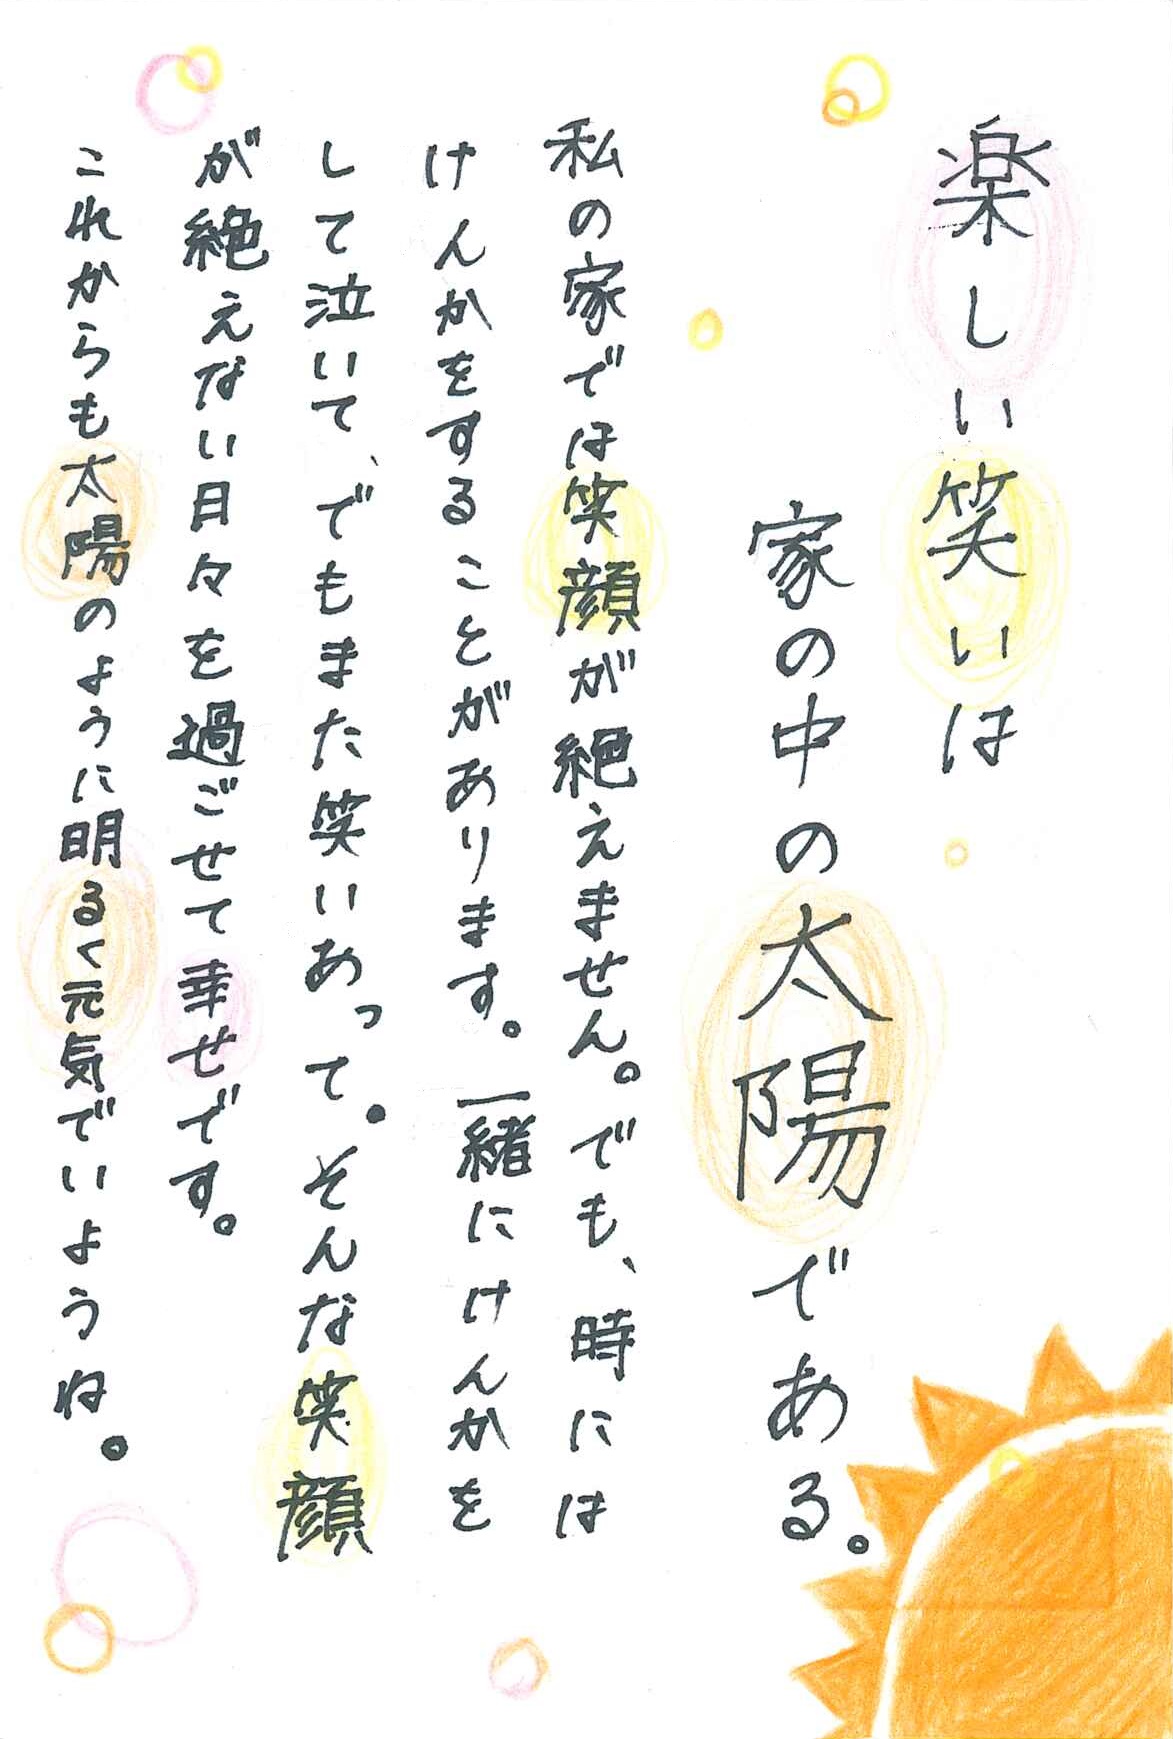 楽しい笑いは
家の中の太陽である。
私の家では笑顔が絶えません。でも、時には
けんかをすることがあります。一緒にけんかを
して泣いて、でもまた笑いあって。そんな笑顔
が絶えない日々を過ごせて幸せです。
これからも太陽のように明るく元気でいようね。